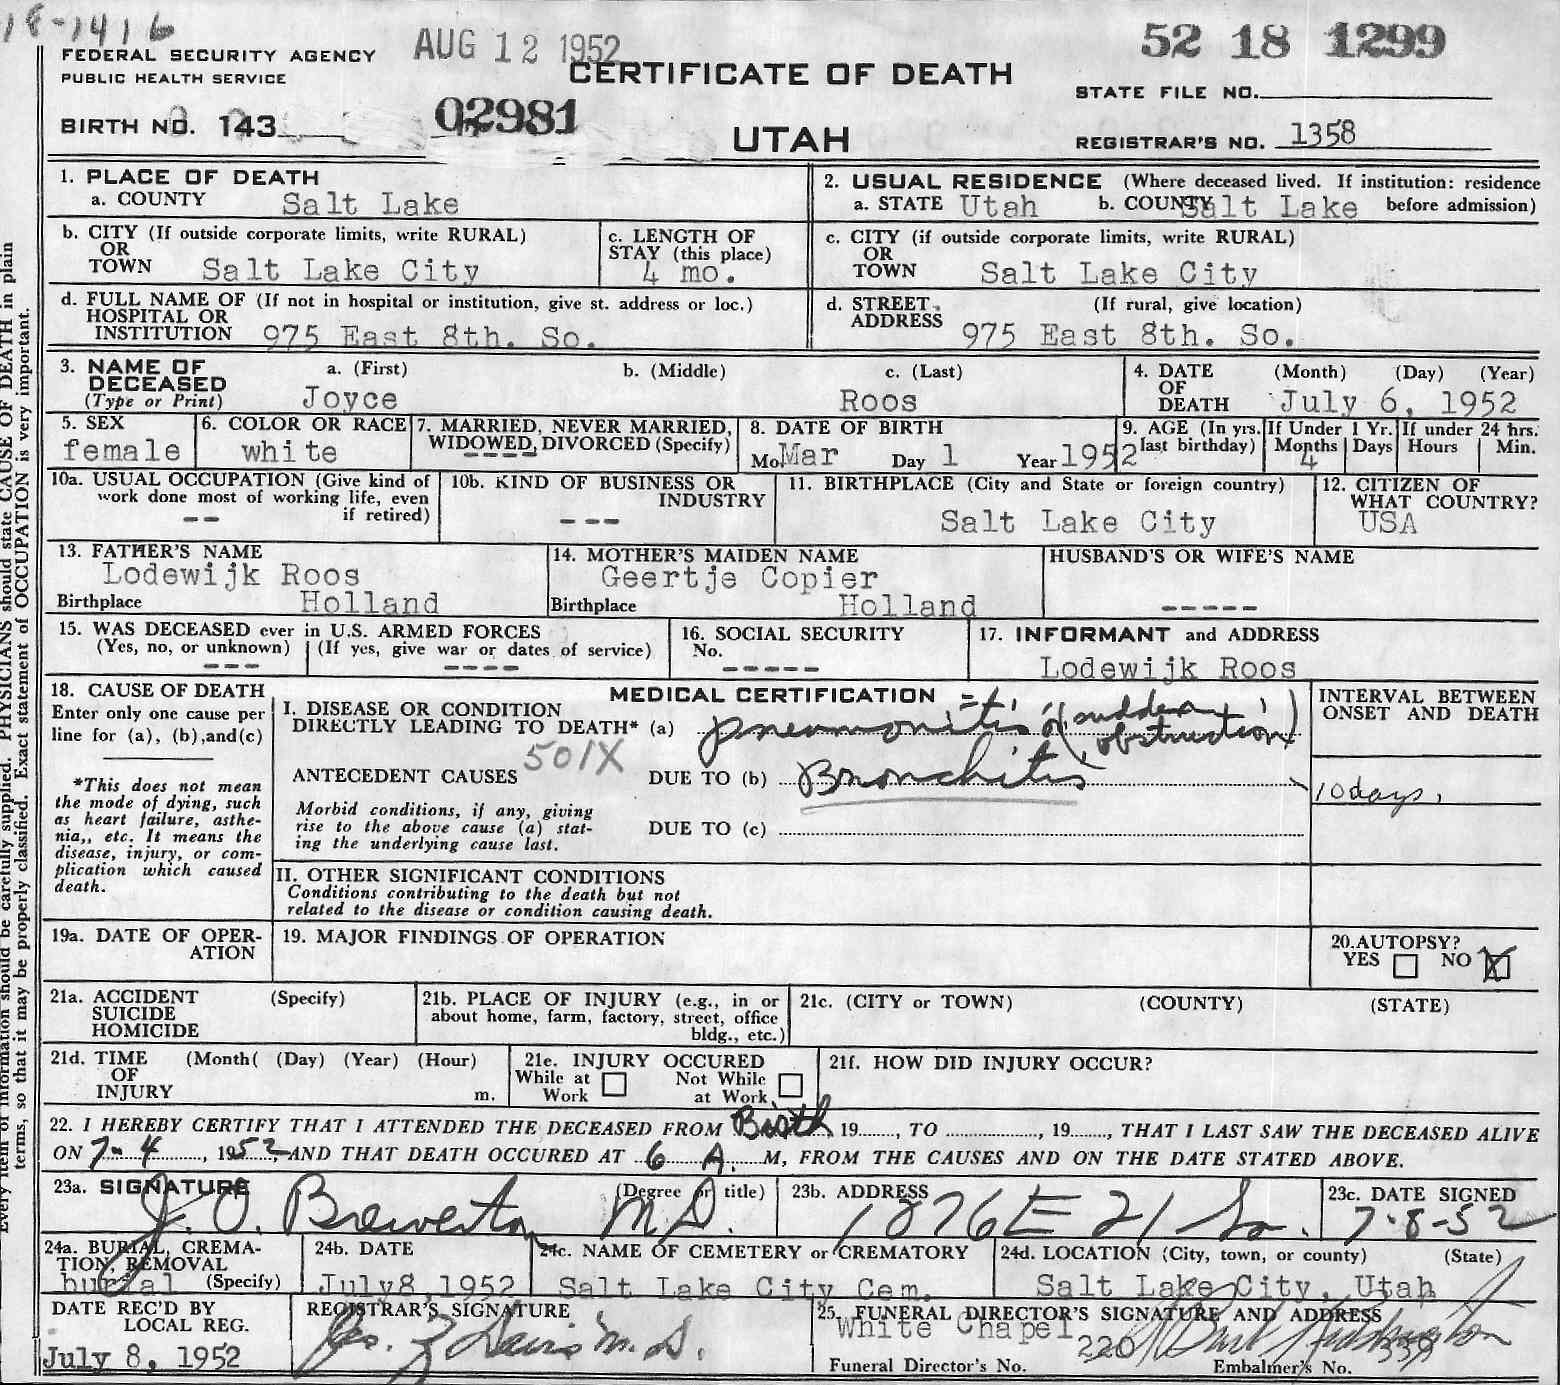 18-1416
AUG 12 1952
52 18 1299
FEDERAL SECURITY AGENCY
PUBLIC HEALTH SERVICE
CERTIFICATE OF DEATH
STATE FILE NO.
BIRTH NO. 143
02981
UTAH
REGISTRAR'S NO. 1358
1. PLACE OF DEATH
a. COUNTY Salt Lake
2. USUAL RESIDENCE (Where deceased lived. If institution: residence before admission)
a. STATE Utah b. COUNTY Salt Lake
b. CITY (If outside corporate limits, write RURAL)
OR
TOWN Salt Lake City
c. LENGTH OF
STAY (this place)
4 mo.
c. CITY (if outside corporate limits, write RURAL)
OR
TOWN Salt Lake City
d. FULL NAME OF (If not in hospital or institution, give st. address or loc.)
HOSPITAL OR
INSTITUTION 975 East 8th. So.
d. STREET (If rural, give location)
ADDRESS 975 East 8th. So.
3. NAME OF DECEASED
(Type or Print)
a. (First) b. (Middle) c. (Last)
Joyce Roos
4. DATE OF DEATH
(Month) (Day) (Year)
July 6, 1952
5. SEX
female
6. COLOR OR RACE
white
7. MARRIED, NEVER MARRIED,
WIDOWED, DIVORCED (Specify)
----
8. DATE OF BIRTH
Mo. Mar Day 1 Year 1952
9. AGE (In yrs. last birthday)
If Under 1 Yr.
Months Days
4
If under 24 hrs.
Hours Min.
10a. USUAL OCCUPATION (Give kind of
work done most of working life, even
if retired)
--
10b. KIND OF BUSINESS OR
INDUSTRY
---
11. BIRTHPLACE (City and State or foreign country)
Salt Lake City
12. CITIZEN OF
WHAT COUNTRY?
USA
13. FATHER'S NAME
Lodewijk Roos
Birthplace Holland
14. MOTHER'S MAIDEN NAME
Geertje Copier
Birthplace Holland
HUSBAND'S OR WIFE'S NAME
-----
15. WAS DECEASED ever in U.S. ARMED FORCES
(Yes, no, or unknown) (If yes, give war or dates of service)
--- ----
16. SOCIAL SECURITY
No.
-----
17. INFORMANT and ADDRESS
Lodewijk Roos
18. CAUSE OF DEATH
Enter only one cause per
line for (a), (b),and(c)
*This does not mean
the mode of dying, such
as heart failure, asthe-
nia,, etc. It means the
disease, injury, or com-
plication which caused
death.
MEDICAL CERTIFICATION
I. DISEASE OR CONDITION
DIRECTLY LEADING TO DEATH* (a) pneumonitis (sudden obstruction)
501X
ANTECEDENT CAUSES DUE TO (b) Bronchitis
Morbid conditions, if any, giving
rise to the above cause (a) stat-
ing the underlying cause last.
DUE TO (c)
INTERVAL BETWEEN
ONSET AND DEATH
10 days,
II. OTHER SIGNIFICANT CONDITIONS
Conditions contributing to the death but not
related to the disease or condition causing death.
19a. DATE OF OPER-
ATION
19. MAJOR FINDINGS OF OPERATION
20.AUTOPSY?
YES NO X
21a. ACCIDENT (Specify)
SUICIDE
HOMICIDE
21b. PLACE OF INJURY (e.g., in or
about home, farm, factory, street, office
bldg., etc.)
21c. (CITY or TOWN) (COUNTY) (STATE)
21d. TIME (Month( (Day) (Year) (Hour)
OF
INJURY m.
21e. INJURY OCCURED
While at Work Not While at Work
21f. HOW DID INJURY OCCUR?
22. I HEREBY CERTIFY THAT I ATTENDED THE DECEASED FROM Birth, 19......, TO ................, 19......, THAT I LAST SAW THE DECEASED ALIVE
ON 7-4, 1952, AND THAT DEATH OCCURED AT 6 A. M, FROM THE CAUSES AND ON THE DATE STATED ABOVE.
23a. SIGNATURE (Degree or title)
J. O. Brewerton M.D.
23b. ADDRESS
1876 E 21 So.
23c. DATE SIGNED
7-8-52
24a. BURIAL, CREMA-
TION, REMOVAL
burial (Specify)
24b. DATE
July 8, 1952
24c. NAME OF CEMETERY or CREMATORY
Salt Lake City Cem.
24d. LOCATION (City, town, or county) (State)
Salt Lake City, Utah
DATE REC'D BY
LOCAL REG.
July 8, 1952
REGISTRAR'S SIGNATURE
25. FUNERAL DIRECTOR'S SIGNATURE AND ADDRESS
White Chapel
Funeral Director's No. 220 Embalmer's No. 339
Every item of information should be carefully supplied. PHYSICIANS should state CAUSE OF DEATH in plain
terms, so that it may be properly classified. Exact statement of OCCUPATION is very important.